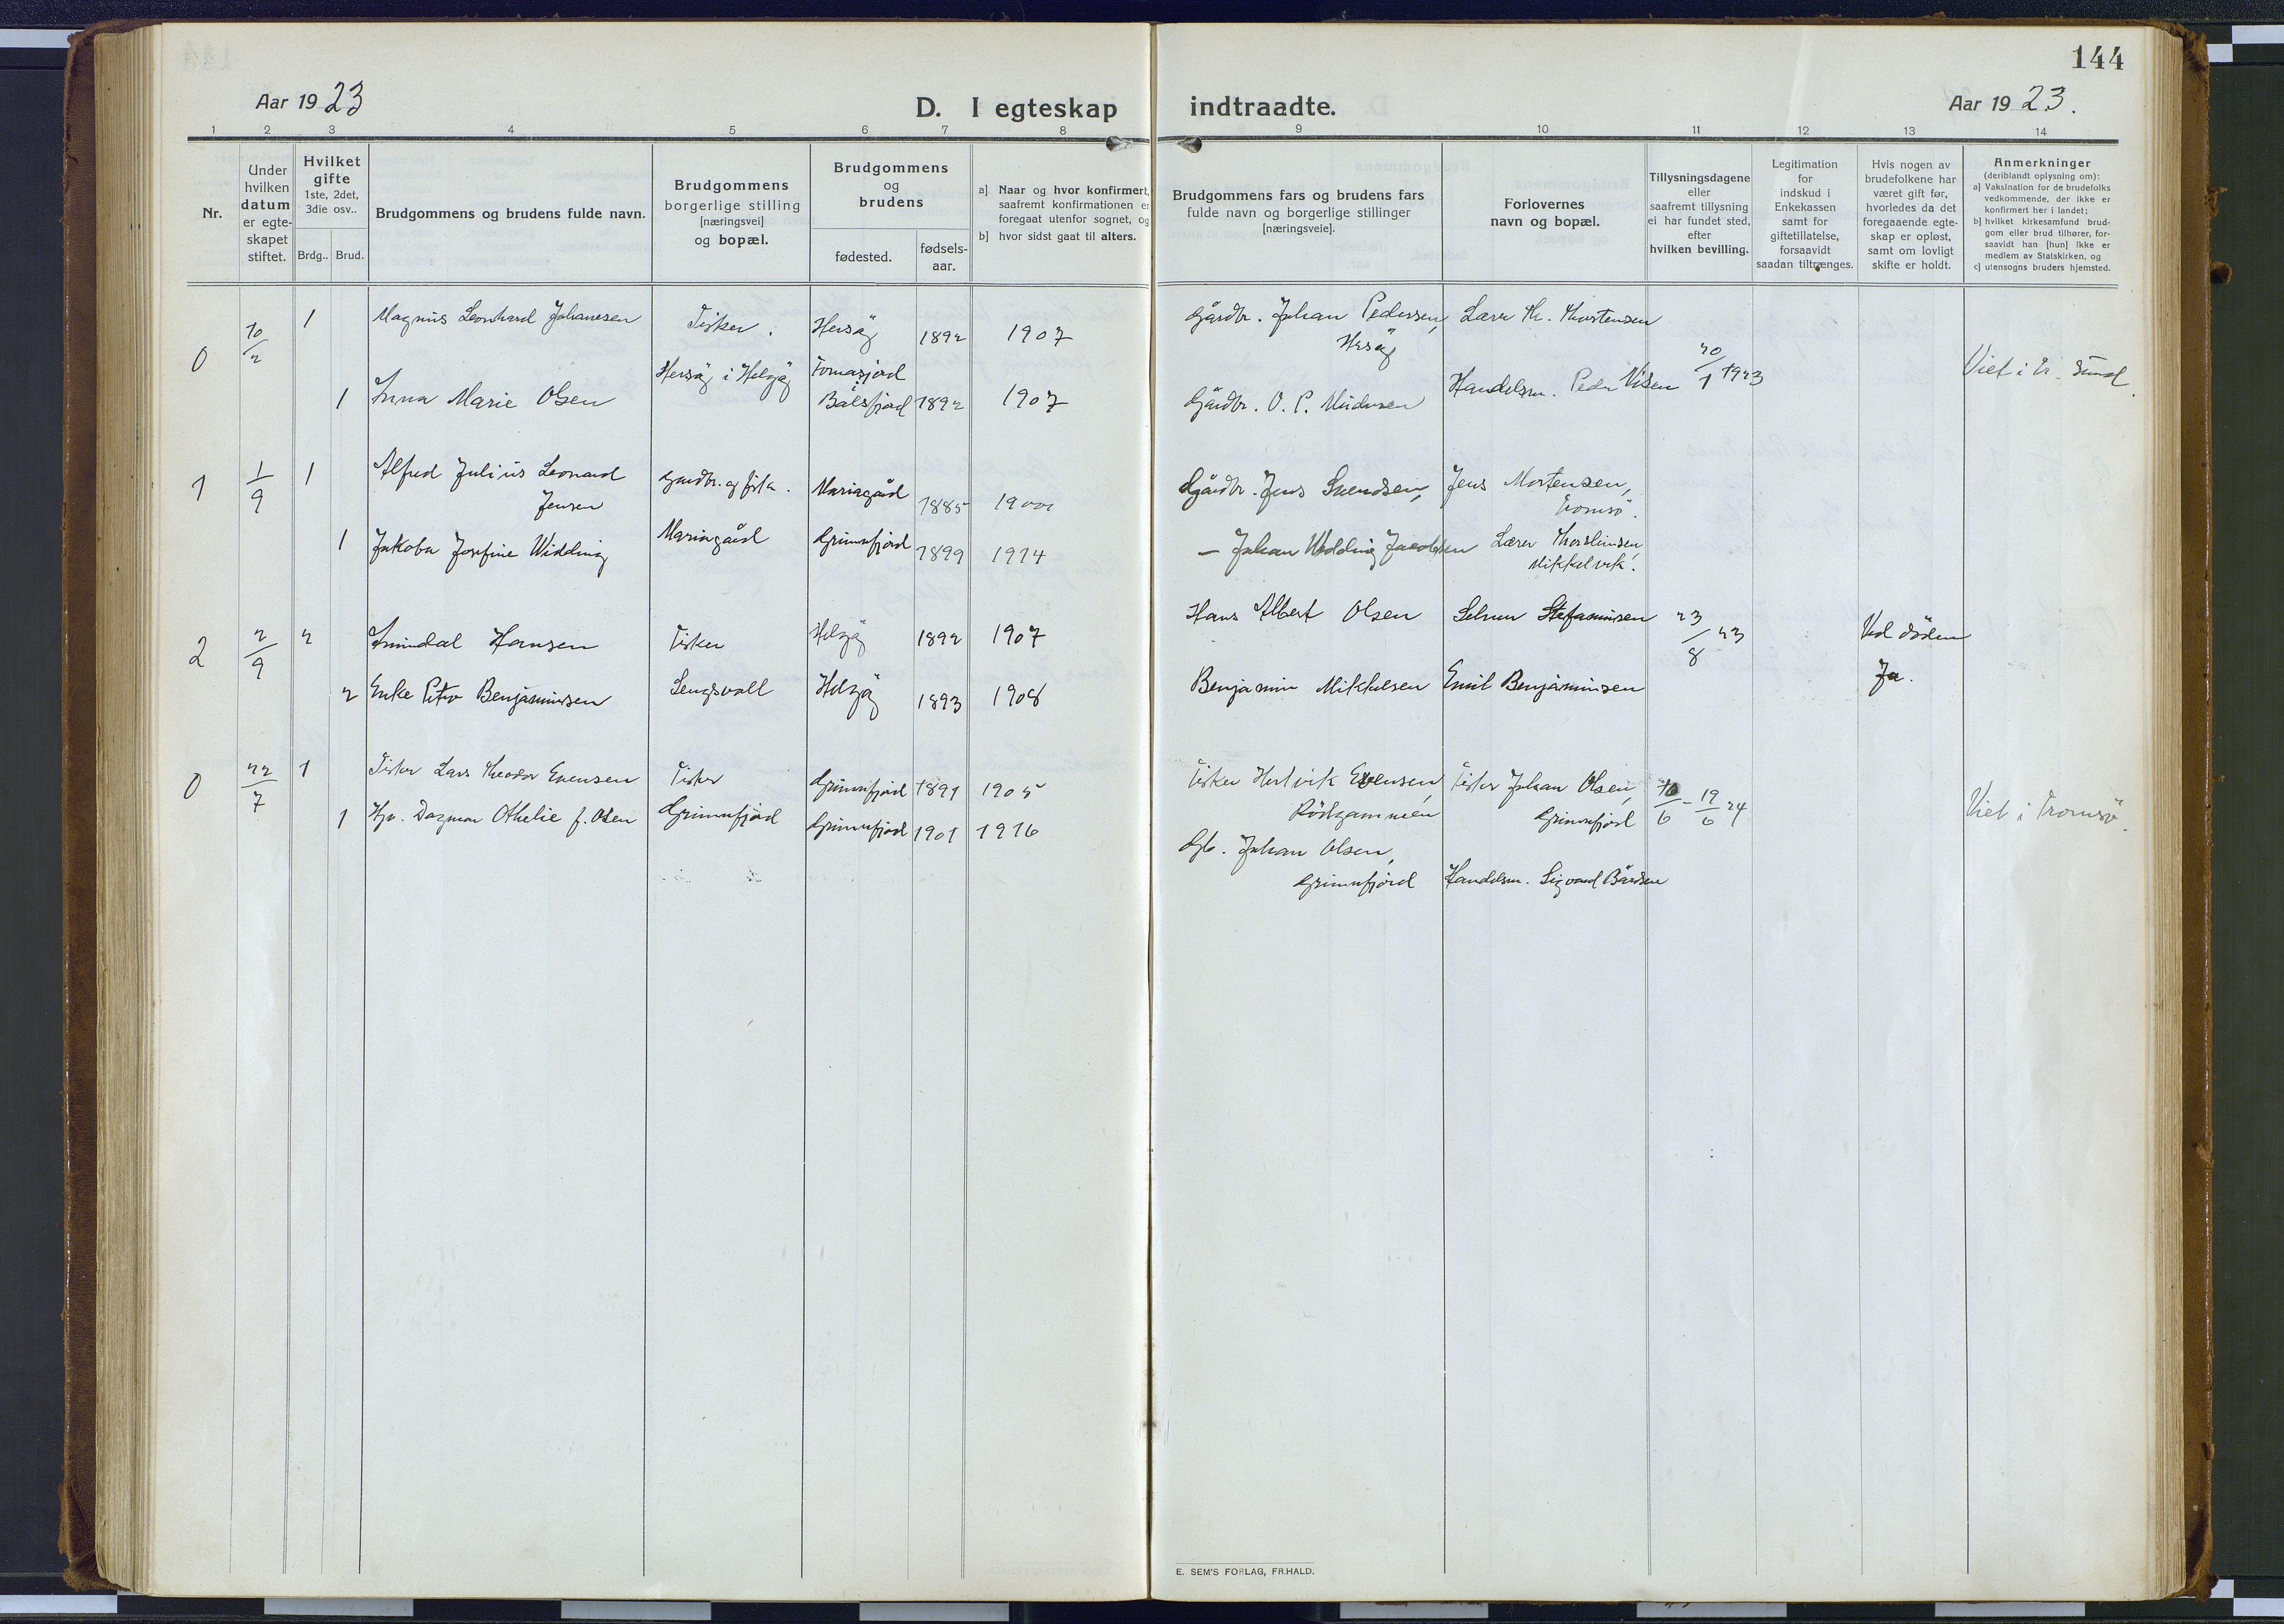 144
Aar 1923
D. I egteskap indtraadte.
Aar 1923.
1 2 3 4 5 6 7 8 9 10 11 12 13 14
Nr.
Under hvilken datum er egteskapet stiftet.
Hvilket gifte
1ste, 2det, 3die osv..
Brdg.. Brud.
Brudgommens og brudens fulde navn.
Brudgommens borgerlige stilling [næringsvei] og bopæl.
Brudgommens og brudens
fødested.
fødsels-aar.
a] Naar og hvor konfirmert, saafremt konfirmationen er foregaat utenfor sognet, og
b] hvor sidst gaat til alters.
Brudgommens fars og brudens fars fulde navn og borgerlige stillinger [næringsveie].
Forlovernes navn og bopæl.
Tillysningsdagene eller saafremt tillysning ei har fundet sted, efter hvilken bevilling.
Legitimation for indskud i Enkekassen samt for giftetillatelse, forsaavidt saadan tiltrænges.
Hvis nogen av brudefolkene har været gift før, hvorledes da det foregaaende egteskap er opløst, samt om lovligt skifte er holdt.
Anmerkninger
(deriblandt oplysning om):
a] Vaksination for de brudefolks vedkommende, der ikke er konfirmert her i landet;
b] hvilket kirkesamfund brudgom eller brud tilhører, forsaavidt han [hun] ikke er medlem av Statskirken, og
c] utensogns bruders hjemsted.
0 10/2 1 Magnus Leonhard Johanesen Fisker. 1892 1907 Gårdbr. Johan Pedersen, Lærer Th. Thorstensen
20/1 1923
1 Anna Marie Olsen Bålsfjord 1892 1907 Gårdbr. O. P. Handelsm. Peder Nilsen
1 1/9 1 Alfred Julius Leonard Jensen Gårdbr. og fisk. Mariagård 1885 1900 Gårdbr. Jens Svendsen, Jens Mortensen, Tromsö.
1 Jakoba Josefine Widding Mariagård Grunnfjord 1899 1914 – Johan Widding Jacobsen Lærer Mikkelvik.
2 2/9 2 Hansen Fisker Helgöy 1892 1907 Hans Albert Olsen Selmer 23/8 23 Ved döden
2 Enke Petra Benjaminsen Lengsvoll Helgöy 1893 1908 Benjamin Mikkelsen Emil Benjaminsen Ja.
0 22/7 1 Fisker Lars Theodor Evensen Fisker Grunnfjord 1891 1905 Fisker Hertvik Evensen, Fisker Johan Olsen, Grunnfjord 10/6 – 19/6 24 Viet i Tromsö.
1 Dagmar Othelie f. Olsen Grunnfjord Grunnfjord 1901 1916 Johan Olsen, Grunnfjord Handelsm. Sigvard Bårdsen
E. SEM'S FORLAG, FR.HALD.